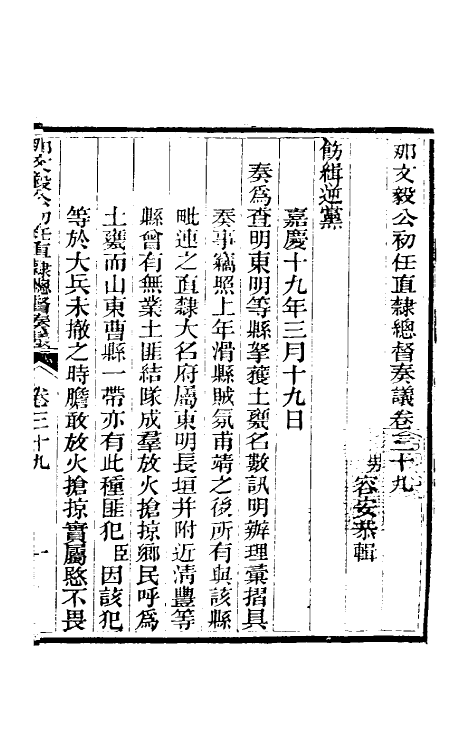 那文毅公初任直隸總督奏議卷三十九
男容安恭輯
飭緝逆黨
嘉慶十九年三月十九日
奏爲查明東明等縣拏獲土𣀈名數訊明辦理彙摺具
奏事竊照上年滑縣賊氛甫靖之後所有與該縣
毗連之直隸大名府屬東明長垣并附近清豐等
縣曾有無業土匪結隊成羣放火搶掠鄉民呼爲
土𣀈而山東曹縣一帶亦有此種匪犯臣因該犯
等於大兵未撤之時膽敢放火搶掠實屬愍不畏
那文毅公初任直隸總督奏議
卷三十九
一